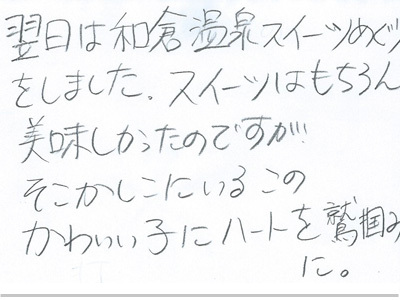 翌日は和倉温泉スイーツめぐり
をしました。スイーツはもちろん
美味しかったのですが!
そこかしこにいるこの
かわいい子にハートを鷲掴み
に。